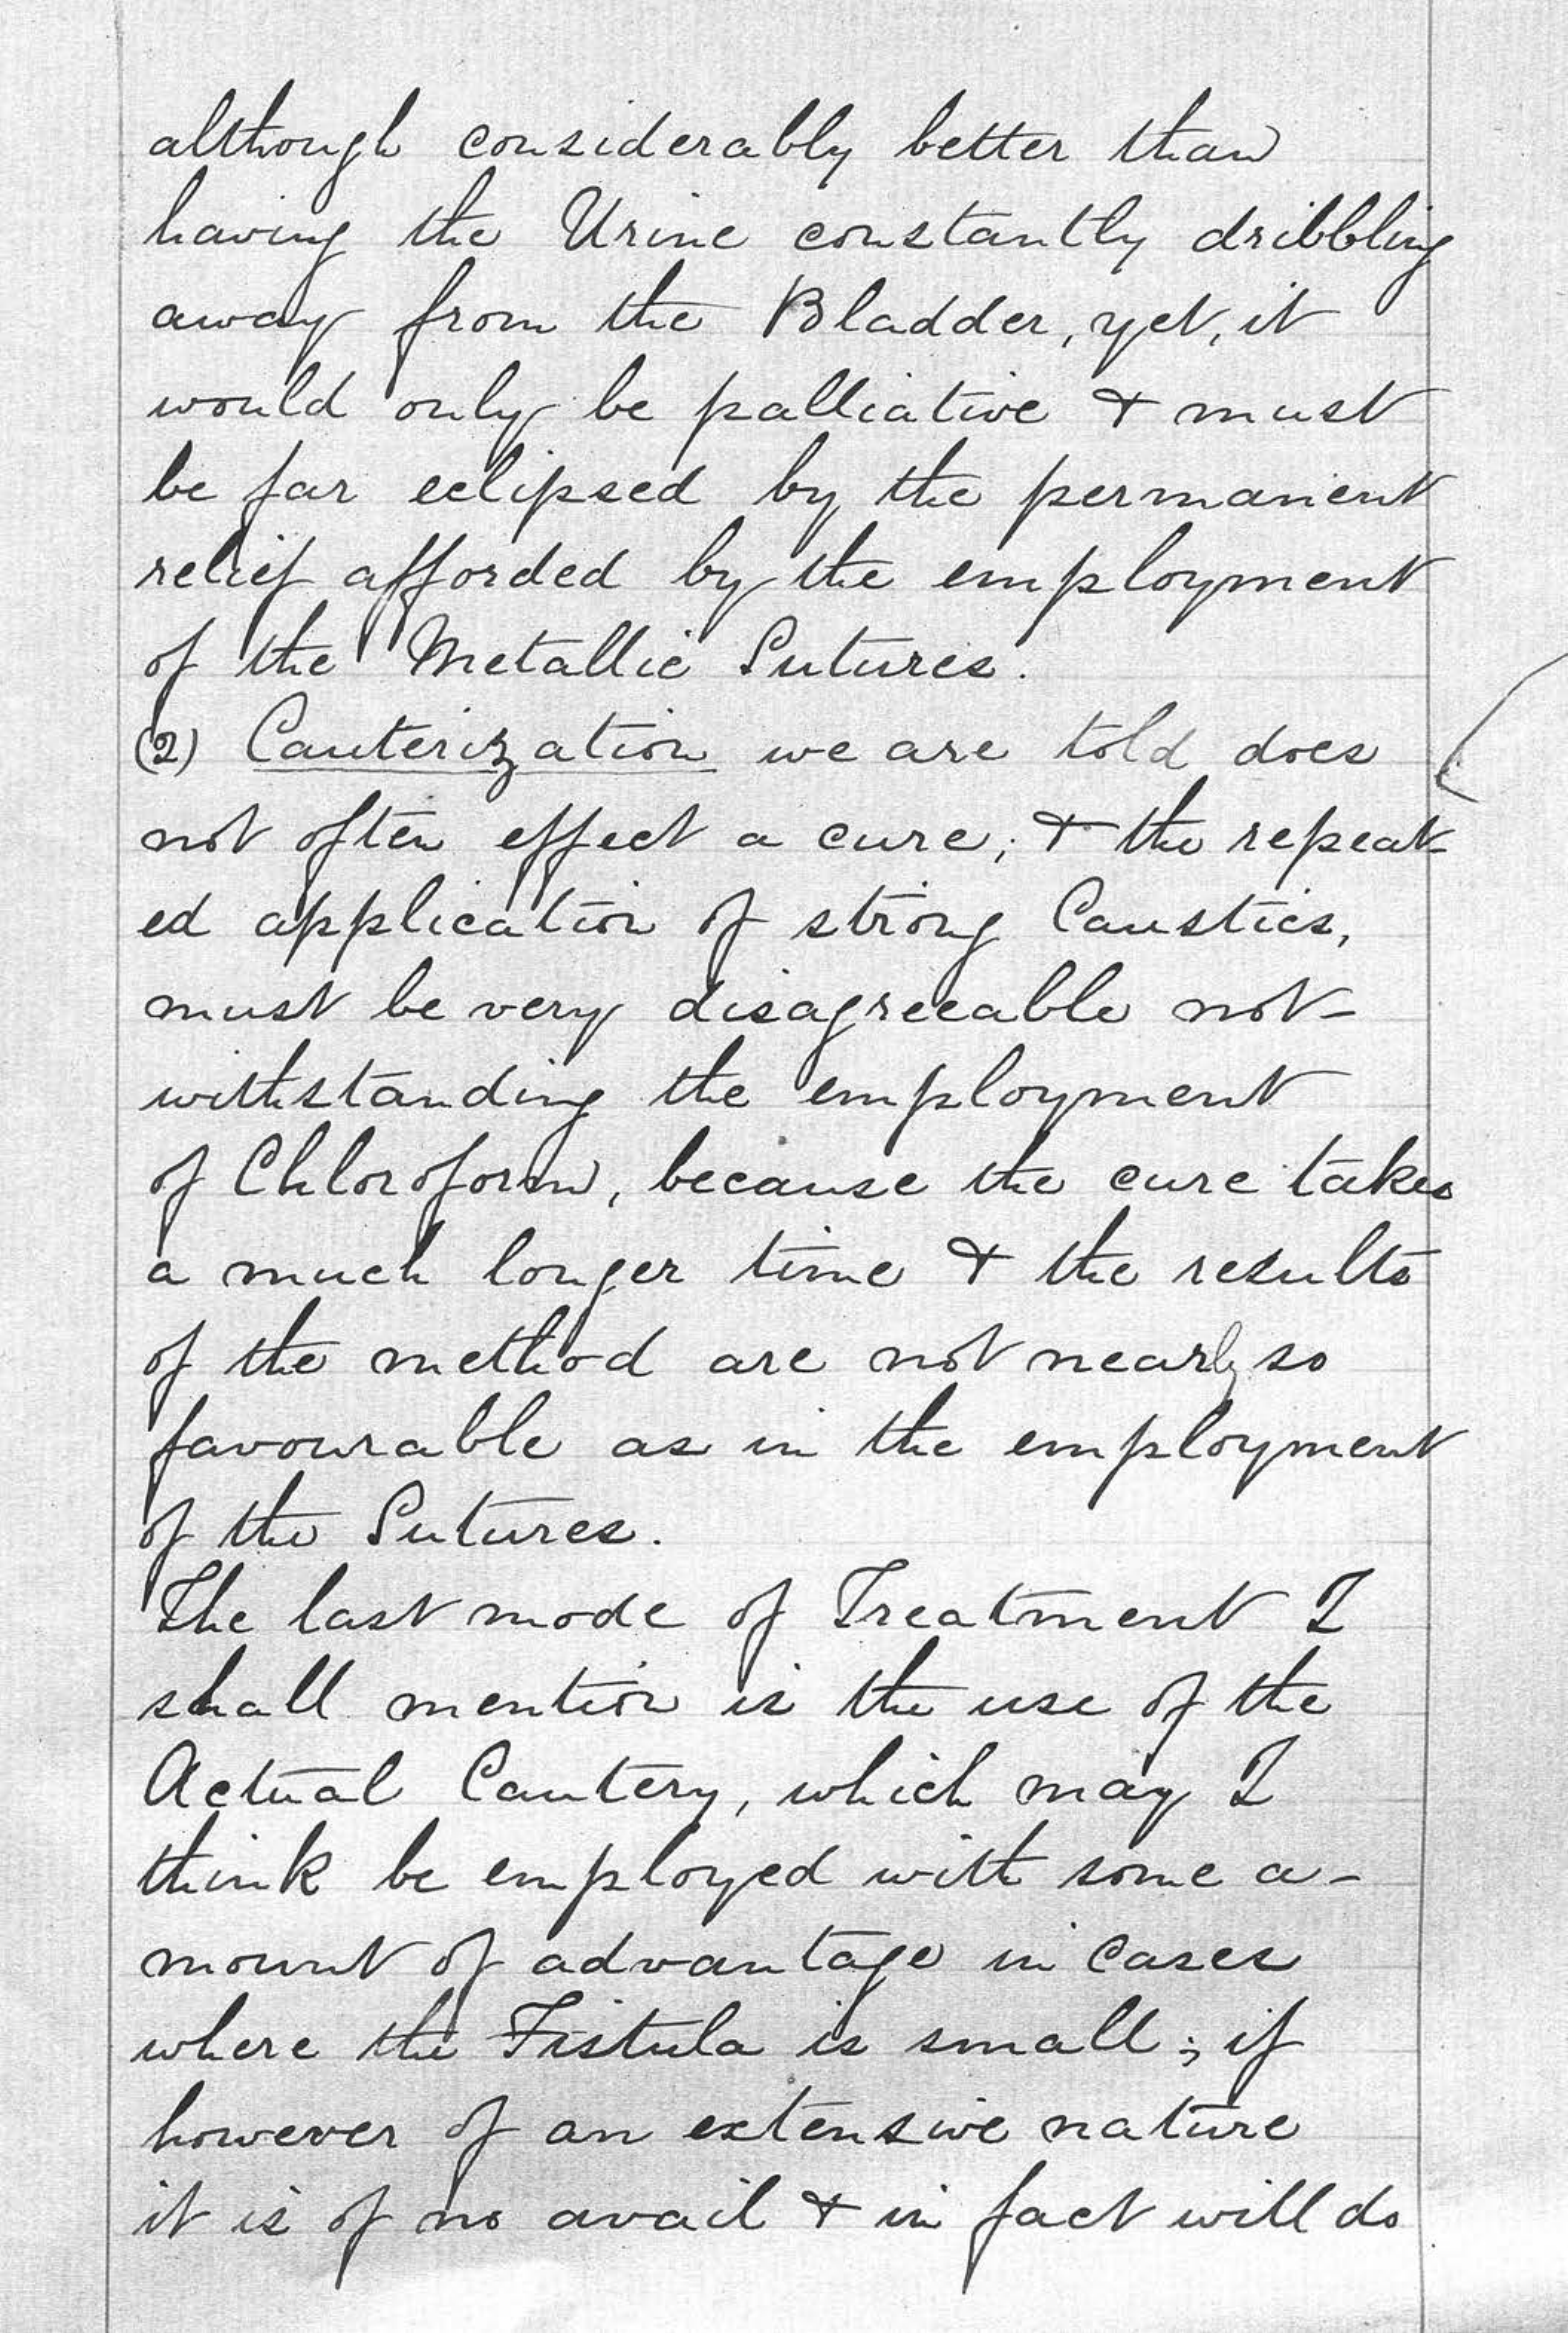 although considerably better than
having the Urine constantly dribbling
away from the Bladder, yet, it
would only be palliative & must
be far eclipsed by the permanent
relief afforded by the employment
of the Metallic Sutures.
(2) Cauterization we are told does
not often effect a cure; & the repeat-
ed application of strong Caustics,
must be very disagreeable not-
withstanding the employment
of Chloroform, because the cure takes
a much longer time & the results
of the method are not nearly so
favourable as in the employment
of the Sutures.
The last mode of Treatment I
shall mention is the use of the
Actual Cautery, which may I
think be employed with some a-
mount of advantage in Cases
where the Fistula is small; if
however of an extensive nature
it is of no avail & in fact will do